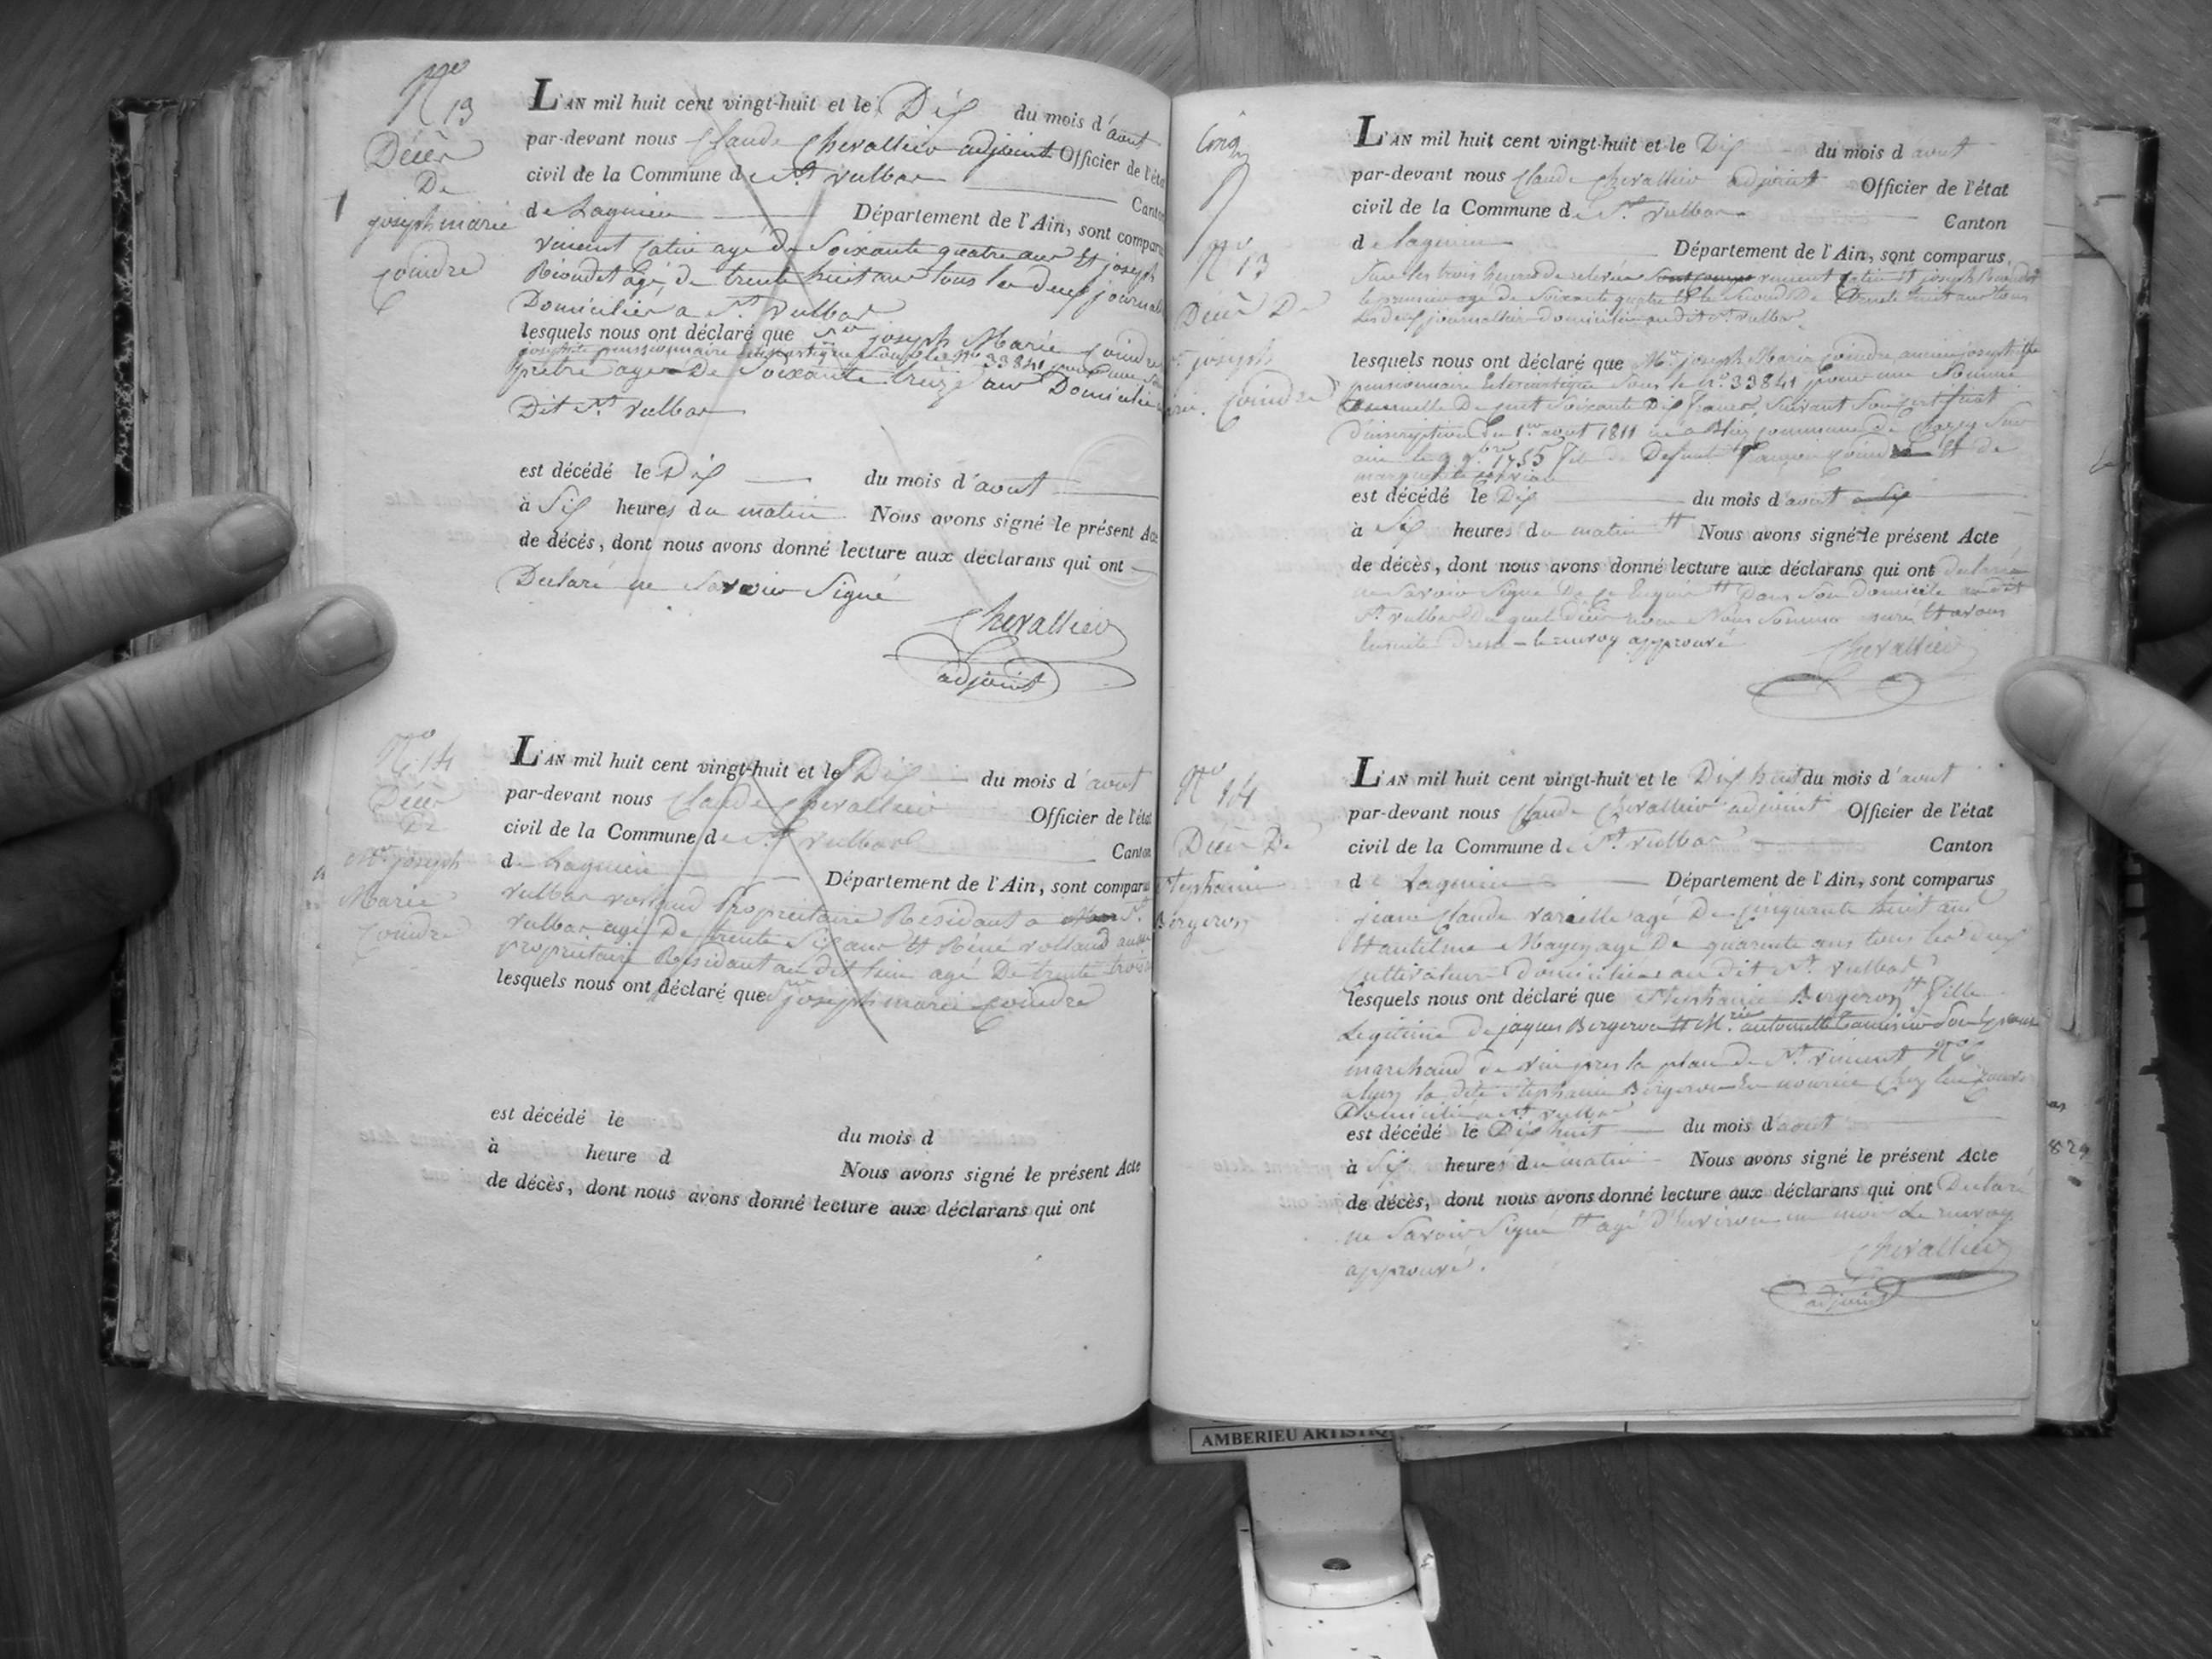 N.o 13
Décès
De
joseph marie
Coindre
L'AN mil huit cent vingt-huit et le Dix du mois d'aout
par-devant nous Claude Chevallier adjoint Officier de l'état
civil de la Commune de St. Vulbas Canton
de Lagnieu Département de l'Ain, sont comparus
vincent Catin agé de Soixante quatre ans Et joseph
agé de trente huit ans tous les deux journal
Domiciliés a St. Vulbas
lesquels nous ont déclaré que joseph Marie Coindre
pensionnaire 33841 pour une
prêtre agé De Soixante treize ans Domicilié
Dit St. Vulbas
est décédé le Dix du mois d'aout
à Six heures du matin Nous avons signé le présent Acte
de décès, dont nous avons donné lecture aux déclarans qui ont
Declaré ne Savoir Signé
Chevallier
adjoint
N.o 14
Décès
De
Mr. joseph
Marie
Coindre
L'AN mil huit cent vingt-huit et le Dix du mois d'aout
par-devant nous Claude Chevallier Officier de l'état
civil de la Commune de St. Vulbas Canton
de Lagnieu Département de l'Ain, sont comparus
vulbas volland Propriétaire Residant a St.
Vulbas agé De trente Six ans Et Réné volland aussi
propriétaire Residant au dit lieu agé De trente trois
lesquels nous ont déclaré que joseph marie Coindre
est décédé le du mois d
à heure d Nous avons signé le présent Acte
de décès, dont nous avons donné lecture aux déclarans qui ont
Cinq
N.o 13
Décès De
joseph
Coindre
L'AN mil huit cent vingt-huit et le Dix du mois d aout
par-devant nous Claude Chevallier adjoint Officier de l'état
civil de la Commune de St. Vulbas Canton
de Lagnieu Département de l'Ain, sont comparus
Sur les trois heures de relevée vincent Catin Et joseph
le premier agé de Soixante quatre Et le Second De trente huit ans tous
les deux journallier domiciliés au dit St. Vulbas
lesquels nous ont déclaré que Mr. joseph Marie Coindre ancien
pensionnaire Eclesiastique Sous le N.o 33841 pour une Somme
annuelle De Soixante Dix francs, Suivant Son certificat
d'inscription Du 1er aout 1811 né a commune de
ain le 9 9bre 1755 fils de Defunt Coindre Et de
marguerite
est décédé le Dix du mois d'aout a Six
à Six heures du matin Nous avons signé le présent Acte
de décès, dont nous avons donné lecture aux déclarans qui ont declaré
ne Savoir Signé De ce Requis Dans Son domicile au dit
St. Vulbas Duquel Décès nous Nous Sommes assuré Et avons
Ensuite Dressé - le renvoy approuvé
Chevallier
N.o 14
Décès De
Stephanie
Bergeron
L'AN mil huit cent vingt-huit et le Dix huit du mois d'aout
par-devant nous Claude Chevallier adjoint Officier de l'état
civil de la Commune de St. Vulbas Canton
de Lagnieu Département de l'Ain, sont comparus
Claude agé De Cinquante huit ans
Et antelme agé De quarante ans tous les deux
Cultivateur domiciliés au dit St. Vulbas
lesquels nous ont déclaré que Stephanie Bergeron fille
Legitime de jaques Bergeron Et
marchand de vin près la place de St. Vincent N.o 6
a Lyon la dite Stephanie Bergeron En nourrice Chez
Domicilié a St. Vulbas
est décédé le Dix huit du mois d'aout
à Six heures du matin Nous avons signé le présent Acte
de décès, dont nous avons donné lecture aux déclarans qui ont Declaré
ne Savoir Signé agé d'Environ un mois Le renvoy
approuvé.
Chevallier
adjoint
829
AMBERIEU ARTISTIQ